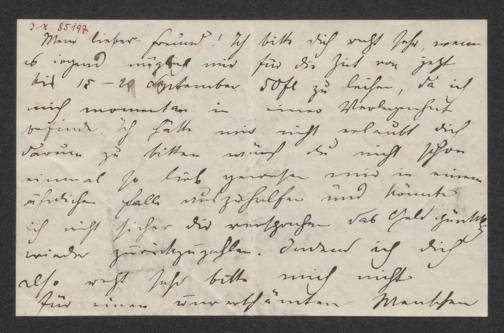 J. N. 85197
Mein lieber Freund! Ich bitte dich recht sehr, wenn
es irgend möglich mir für die Zeit von jetzt
bis 15 – 20 September 50fl zu leihen, da ich
mich momentan in einer Verlegenheit
befinde. Ich hätte mir nicht erlaubt dich
darum zu bitten wärest du nicht schon
einmal so lieb gewesen mir in einem
ähnlichen Falle auszuhelfen und könnte
ich nicht sicher dir versprechen das Geld pünktl.
wieder zurückzuzahlen. Indem ich dich
also recht sehr bitte mich nicht
für einen unverschämten Menschen